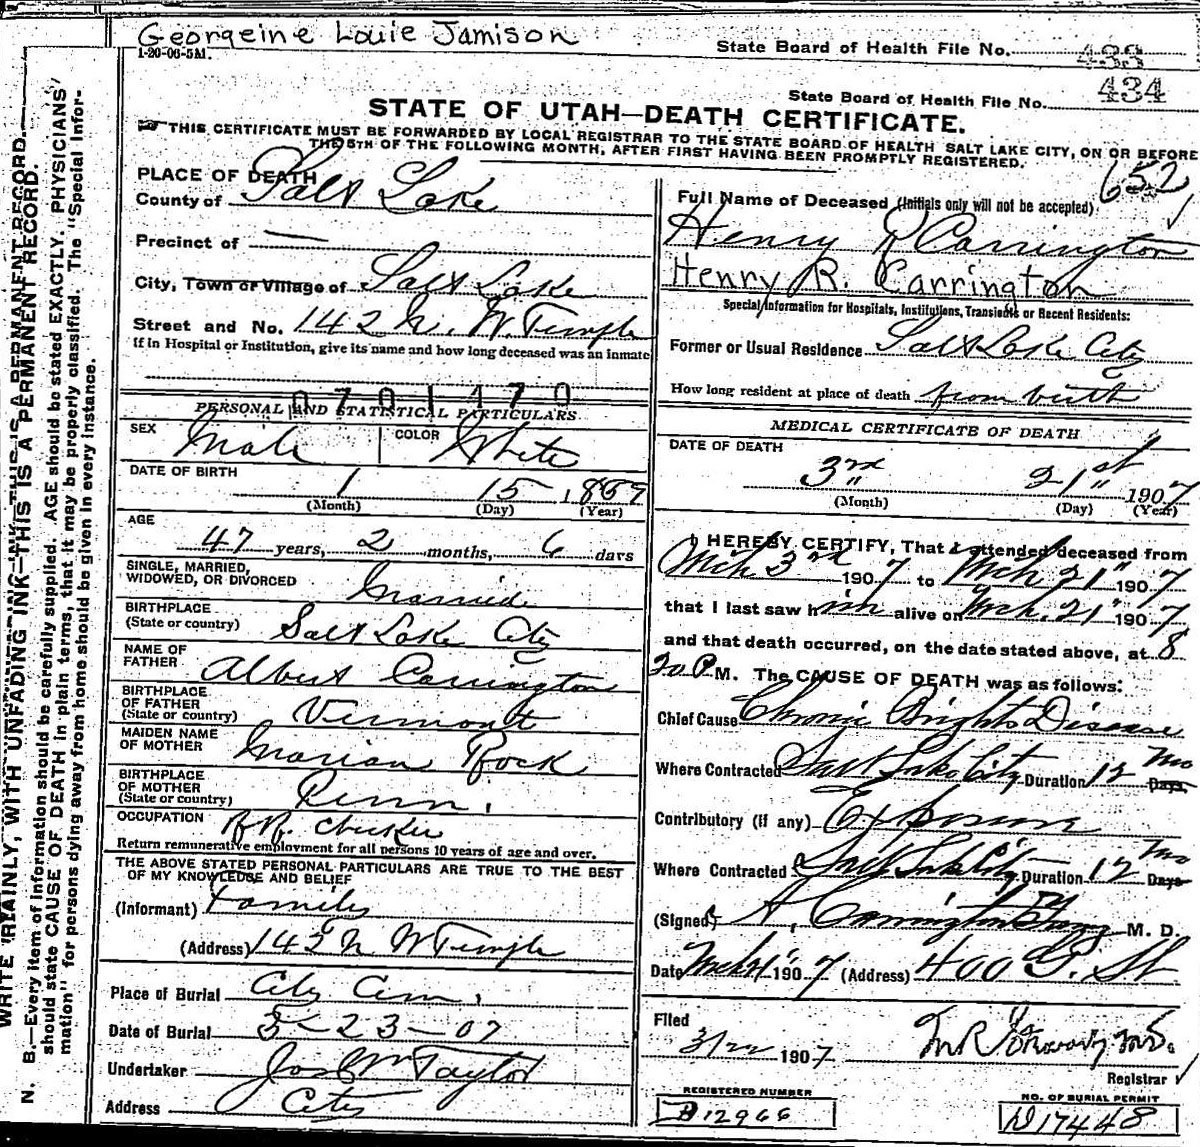 Georgeine Louie Jamison
1-20-06-5M.
State Board of Health File No. 433
State Board of Health File No. 434
STATE OF UTAH—DEATH CERTIFICATE.
THIS CERTIFICATE MUST BE FORWARDED BY LOCAL REGISTRAR TO THE STATE BOARD OF HEALTH SALT LAKE CITY, ON OR BEFORE
THE 5TH OF THE FOLLOWING MONTH, AFTER FIRST HAVING BEEN PROMPTLY REGISTERED.
WRITE PLAINLY, WITH UNFADING INK—THIS IS A PERMANENT RECORD.
N. B.—Every item of information should be carefully supplied. AGE should be stated EXACTLY. PHYSICIANS
should state CAUSE OF DEATH in plain terms, that it may be properly classified. The "Special Infor-
mation" for persons dying away from home should be given in every instance.
PLACE OF DEATH
County of Salt Lake
Precinct of —
City, Town or Village of Salt Lake
Street and No. 142 N. W. Temple
If in Hospital or Institution, give its name and how long deceased was an inmate
0701470
PERSONAL AND STATISTICAL PARTICULARS
SEX Male COLOR White
DATE OF BIRTH 1 15, 1859
(Month) (Day) (Year)
AGE
47 years, 2 months, 6 days
SINGLE, MARRIED,
WIDOWED, OR DIVORCED Married
BIRTHPLACE
(State or country) Salt Lake City
NAME OF
FATHER Albert Carrington
BIRTHPLACE
OF FATHER
(State or country) Vermont
MAIDEN NAME
OF MOTHER Marian Rock
BIRTHPLACE
OF MOTHER
(State or country) Penn.
OCCUPATION R.R. checker
Return remunerative employment for all persons 10 years of age and over.
THE ABOVE STATED PERSONAL PARTICULARS ARE TRUE TO THE BEST
OF MY KNOWLEDGE AND BELIEF
(Informant) Family
(Address) 142 N W Temple
Place of Burial City Cem.
Date of Burial 3-23-07
Undertaker Jos Wm Taylor
Address City
652
Full Name of Deceased (Initials only will not be accepted)
Henry R Carrington
Henry R. Carrington
Special Information for Hospitals, Institutions, Transients or Recent Residents:
Former or Usual Residence Salt Lake City
How long resident at place of death from birth
MEDICAL CERTIFICATE OF DEATH
DATE OF DEATH
3rd 21st 1907
(Month) (Day) (Year)
I HEREBY CERTIFY, That I attended deceased from
Mch 3rd 1907 to Mch 21" 1907
that I last saw him alive on Mch. 21" 1907
and that death occurred, on the date stated above, at 8
20 P M. The CAUSE OF DEATH was as follows:
Chief Cause Chronic Brights Disease
Where Contracted Salt Lake City Duration 12 Mo Days
Contributory (if any) Exposure
Where Contracted Salt Lake City Duration 12 Mo Days
(Signed) A. Carrington Young M. D.
Date 1907 (Address) 400 G. St
Filed
3/22 1907
Registrar
REGISTERED NUMBER
D 12966
NO. OF BURIAL PERMIT
D 17448